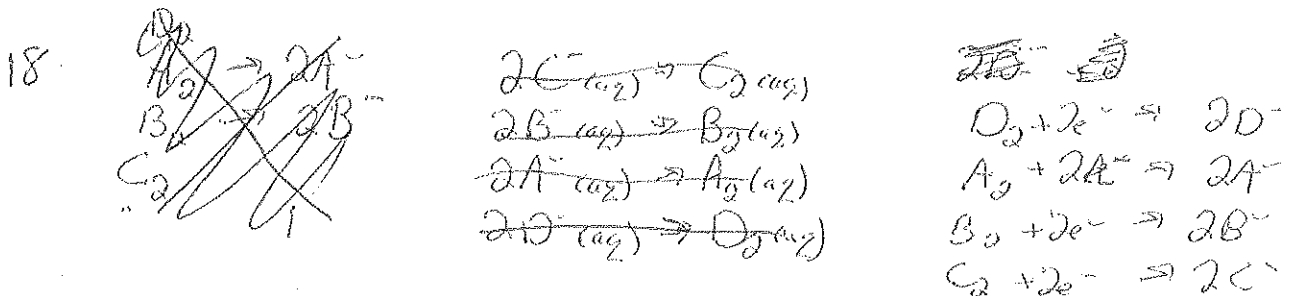 18.
A₂ → 2A⁻
B₂ → 2B⁻
C₂
2C⁻(aq) → C₂(aq)
2B⁻(aq) → B₂(aq)
2A⁻(aq) → A₂(aq)
2D⁻(aq) → D₂(aq)
D₂ + 2e⁻ → 2D⁻
A₂ + 2e⁻ → 2A⁻
B₂ + 2e⁻ → 2B⁻
C₂ + 2e⁻ → 2C⁻